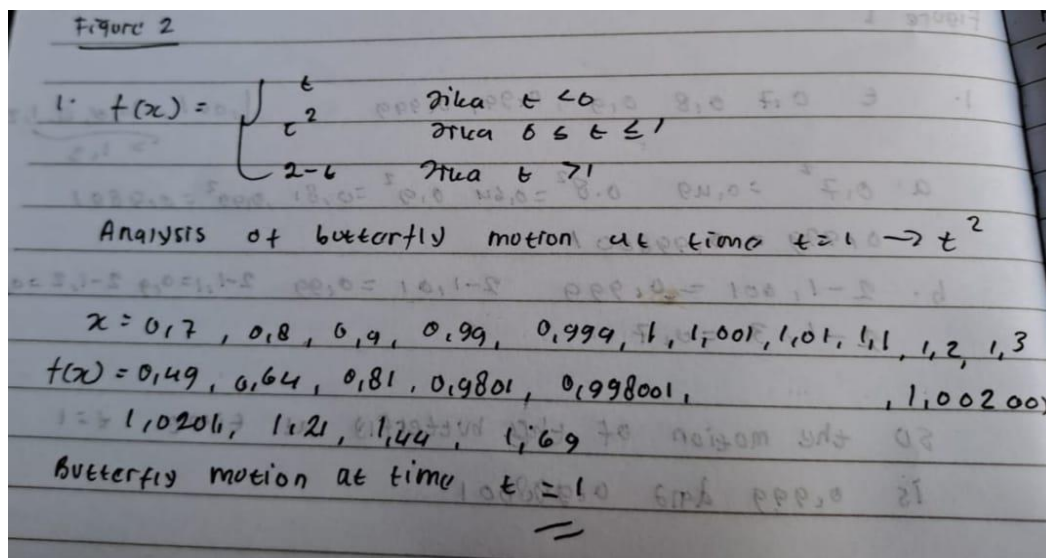 Figure 2
1. f(x) = { t jika t < 0
t² jika 0 ≤ t ≤ 1
2-t jika t > 1
Analysis of butterfly motion at time t = 1 → t²
x = 0,7, 0,8, 0,9, 0,99, 0,999, 1, 1,001, 1,01, 1,1, 1,2, 1,3
f(x) = 0,49, 0,64, 0,81, 0,9801, 0,998001, , 1,002001
1,0201, 1,21, 1,44, 1,69
Butterfly motion at time t = 1